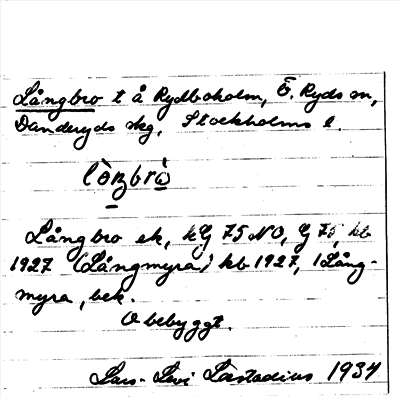 Långbro t å Rydboholm, Ö. Ryds sn,
Danderyds skg, Stockholms l.
lòŋbrò
Långbro ek, kG 75 NO, G 75, kb
1927 (Långmyra) kb 1927, 1 Lång-
myra, bek.
Obebyggt.
Lars-Levi Læstadius 1934